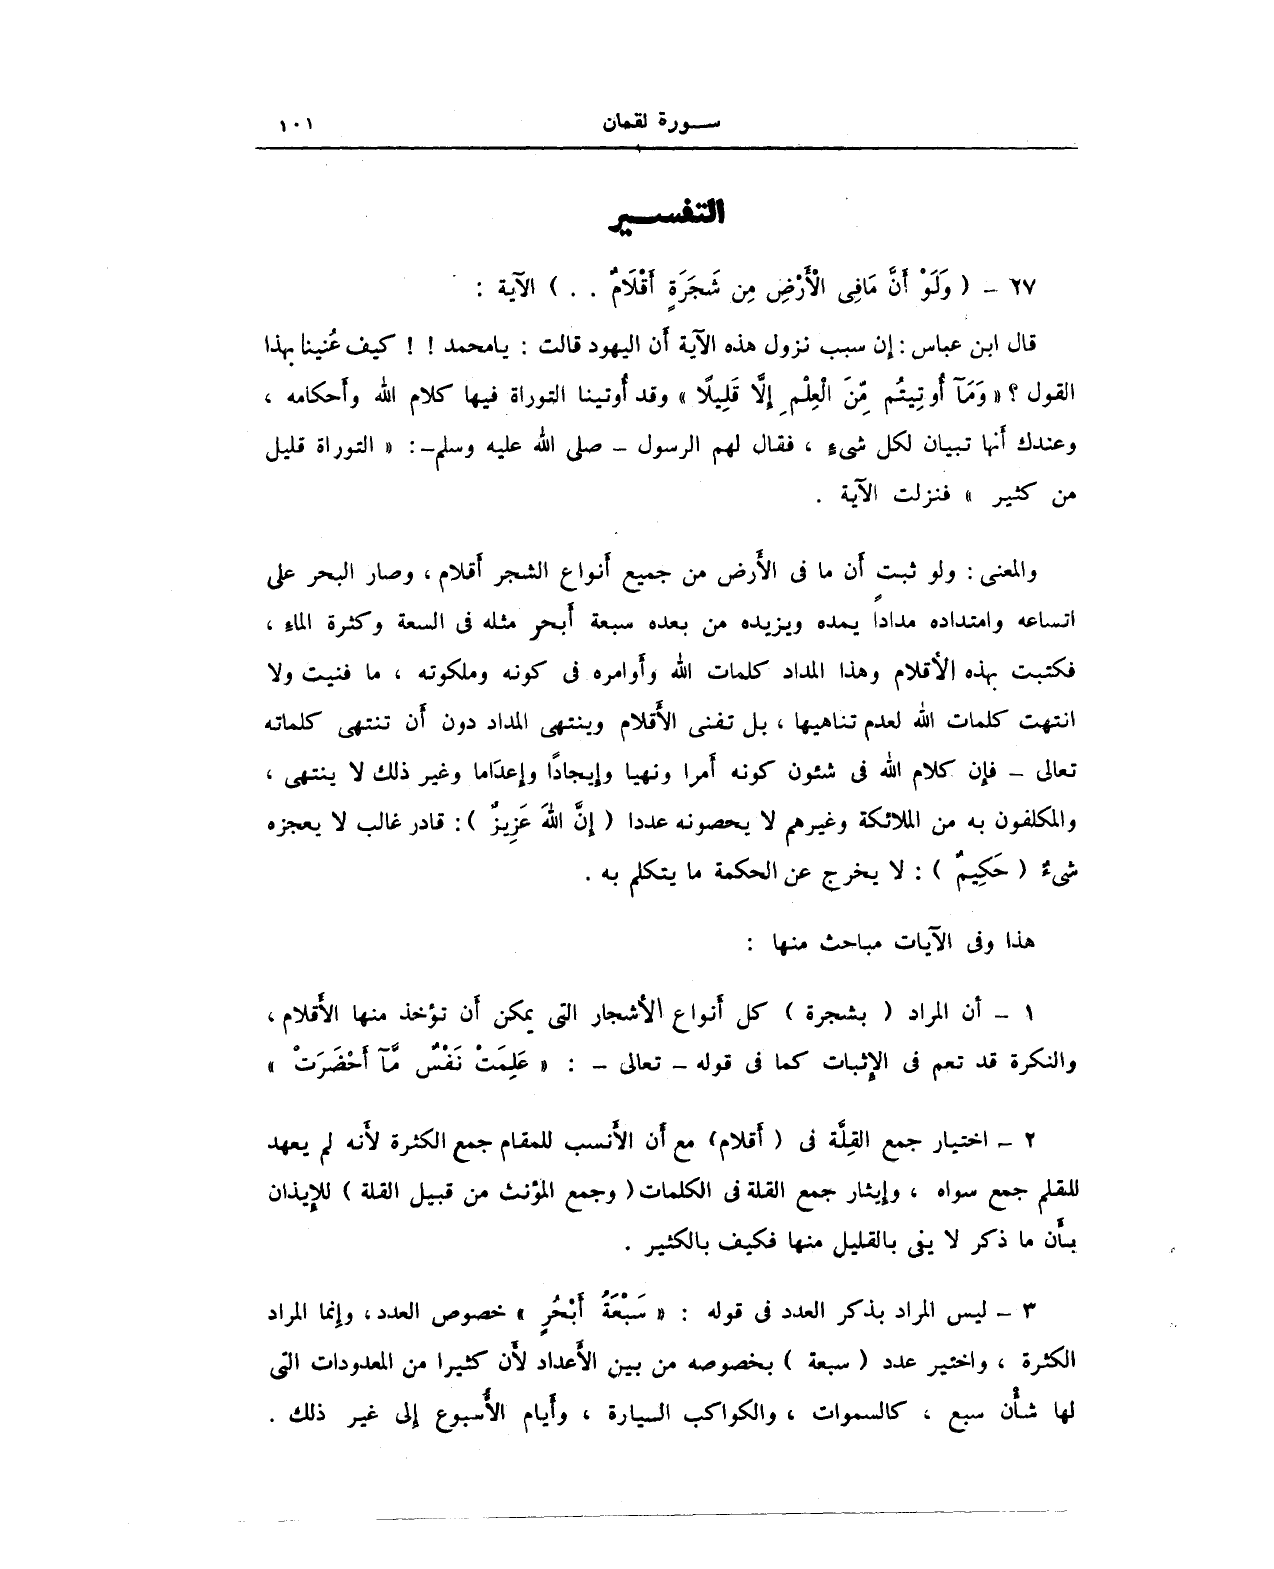 سورة لقمان ١٠١
التفسير
٢٧ - ( وَلَوْ أَنَّ مَافِى الْأَرْضِ مِن شَجَرَةٍ أَقْلَامٌ . . ) الآية :
قال ابن عباس : إن سبب نزول هذه الآية أن اليهود قالت : يامحمد ! ! كيف عُنينا بهذا
القول ؟ « وَمَآ أُوتِيتُم مِّنَ الْعِلْمِ إِلَّا قَلِيلًا » وقد أُوتينا التوراة فيها كلام الله وأحكامه ،
وعندك أنها تبيان لكل شىء ، فقال لهم الرسول - صلى الله عليه وسلم - : « التوراة قليل
من كثير » فنزلت الآية .
والمعنى : ولو ثبت أن ما فى الأرض من جميع أنواع الشجر أقلام ، وصار البحر على
اتساعه وامتداده مدادا يمده ويزيده من بعده سبعة أبحر مثله فى السعة وكثرة الماء ،
فكتبت بهذه الأقلام وهذا المداد كلمات الله وأوامره فى كونه وملكوته ، ما فنيت ولا
انتهت كلمات الله لعدم تناهيها ، بل تفنى الأقلام وينتهى المداد دون أن تنتهى كلماته
تعالى - فإن كلام الله فى شئون كونه أمرا ونهيا وإيجادًا وإعدَاما وغير ذلك لا ينتهى ،
والمكلفون به من الملائكة وغيرهم لا يحصونه عددا ( إِنَّ اللهَ عَزِيزٌ ) : قادر غالب لا يعجزه
شىءٌ ( حَكِيمٌ ) : لا يخرج عن الحكمة ما يتكلم به .
هذا وفى الآيات مباحث منها :
١ - أن المراد ( بشجرة ) كل أنواع الأشجار التى يمكن أن تؤخذ منها الأقلام ،
والنكرة قد تعم فى الإثبات كما فى قوله - تعالى - : « عَلِمَتْ نَفْسٌ مَّآ أَحْضَرَتْ »
٢ - اختيار جمع القِلَّة فى ( أقلام ) مع أن الأنسب للمقام جمع الكثرة لأنه لم يعهد
للقلم جمع سواه ، وإيثار جمع القلة فى الكلمات ( وجمع المؤنث من قبيل القلة ) للإيذان
بأن ما ذكر لا يفى بالقليل منها فكيف بالكثير .
٣ - ليس المراد بذكر العدد فى قوله : « سَبْعَةُ أَبْحُرٍ » خصوص العدد ، وإنما المراد
الكثرة ، واختير عدد ( سبعة ) بخصوصه من بين الأعداد لأن كثيرا من المعدودات التى
لها شأن سبع ، كالسموات ، والكواكب السيارة ، وأيام الأسبوع إلى غير ذلك .